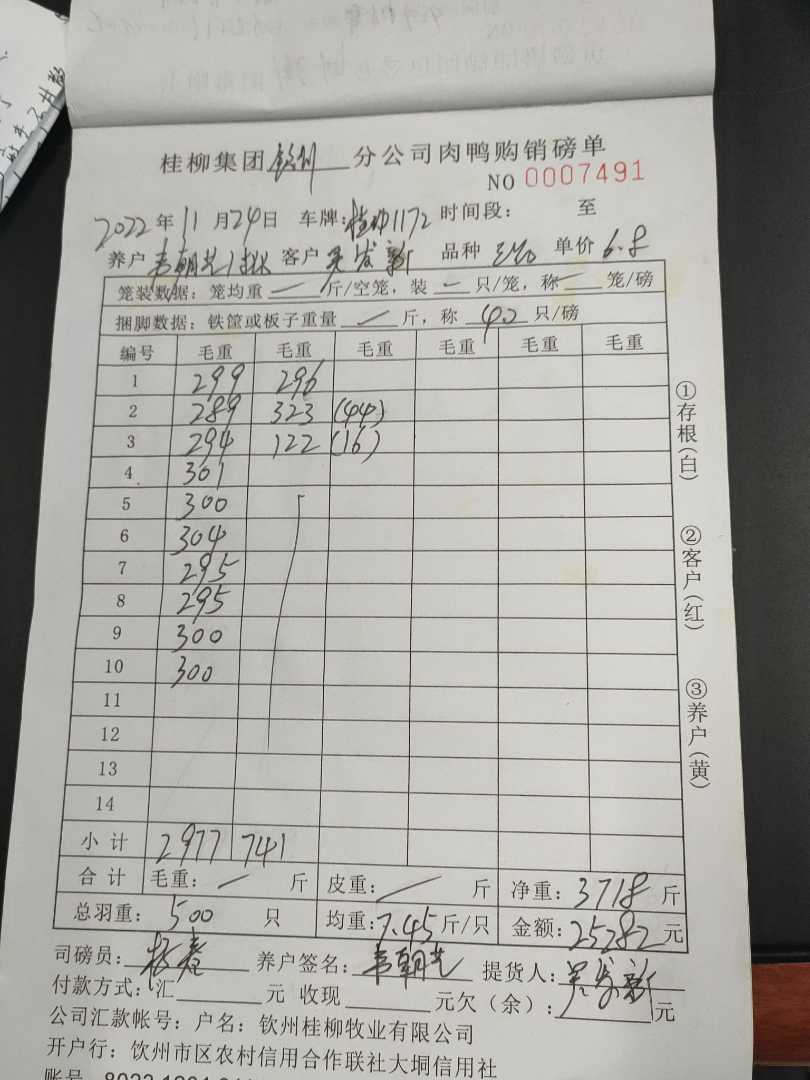 桂柳集团钦州分公司肉鸭购销磅单
NO 0007491
2022年11月24日 车牌:桂 1172 时间段: 至
养户 韦朝芝1批 客户 吴发新 品种 单价 6.8
笼装数据: 笼均重 — 斤/空笼, 装 — 只/笼, 称 — 笼/磅
捆脚数据: 铁筐或板子重量 / 斤, 称 40 只/磅
编号 毛重 毛重 毛重 毛重 毛重 毛重
1 299 296
2 289 323 (44)
3 294 122 (16)
4 301
5 300
6 304
7 295
8 295
9 300
10 300
11
12
13
14
小计 2977 741
合计 毛重: — 斤 皮重: — 斤 净重: 3718 斤
总羽重: 500 只 均重: 7.45 斤/只 金额: 25282 元
司磅员: 杨春 养户签名: 韦朝芝 提货人: 吴发新
付款方式: 汇 元 收现 元欠(余): 元
公司汇款帐号: 户名: 钦州桂柳牧业有限公司
开户行: 钦州市区农村信用合作联社大垌信用社
账号
①存根(白)
②客户(红)
③养户(黄)